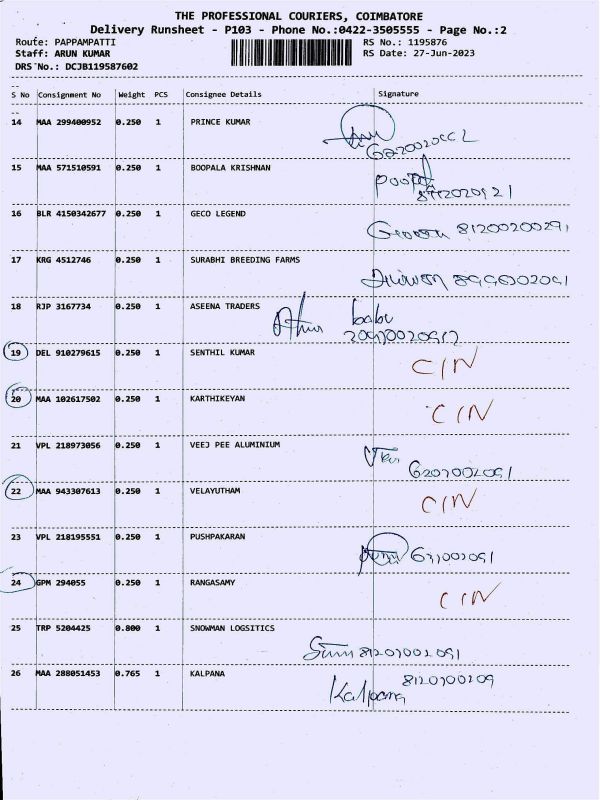 THE PROFESSIONAL COURIERS, COIMBATORE
Delivery Runsheet - P103 - Phone No.:0422-3505555 - Page No.:2
Route: PAPPAMPATTI RS No.: 1195876
Staff: ARUN KUMAR RS Date: 27-Jun-2023
DRS No.: DCJB119587602
S No Consignment No Weight PCS Consignee Details Signature
14 MAA 299400952 0.250 1 PRINCE KUMAR
15 MAA 571510591 0.250 1 BOOPALA KRISHNAN
16 BLR 4150342677 0.250 1 GECO LEGEND
17 KRG 4512746 0.250 1 SURABHI BREEDING FARMS
18 RJP 3167734 0.250 1 ASEENA TRADERS babu
19 DEL 910279615 0.250 1 SENTHIL KUMAR CIN
20 MAA 102617502 0.250 1 KARTHIKEYAN CIN
21 VPL 218973056 0.250 1 VEEJ PEE ALUMINIUM
22 MAA 943307613 0.250 1 VELAYUTHAM CIN
23 VPL 218195551 0.250 1 PUSHPAKARAN
24 GPM 294055 0.250 1 RANGASAMY CIN
25 TRP 5204425 0.800 1 SNOWMAN LOGSITICS
26 MAA 288051453 0.765 1 KALPANA
Kalpana